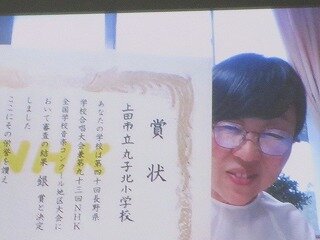 賞状
上田市立丸子北小学校
あなたの学校は第四十回長野県
学校合唱大会兼第九十三回NHK
全国学校音楽コンクール地区大会に
おいて審査の結果 銀賞と決定
しました
ここにその栄誉を讃え